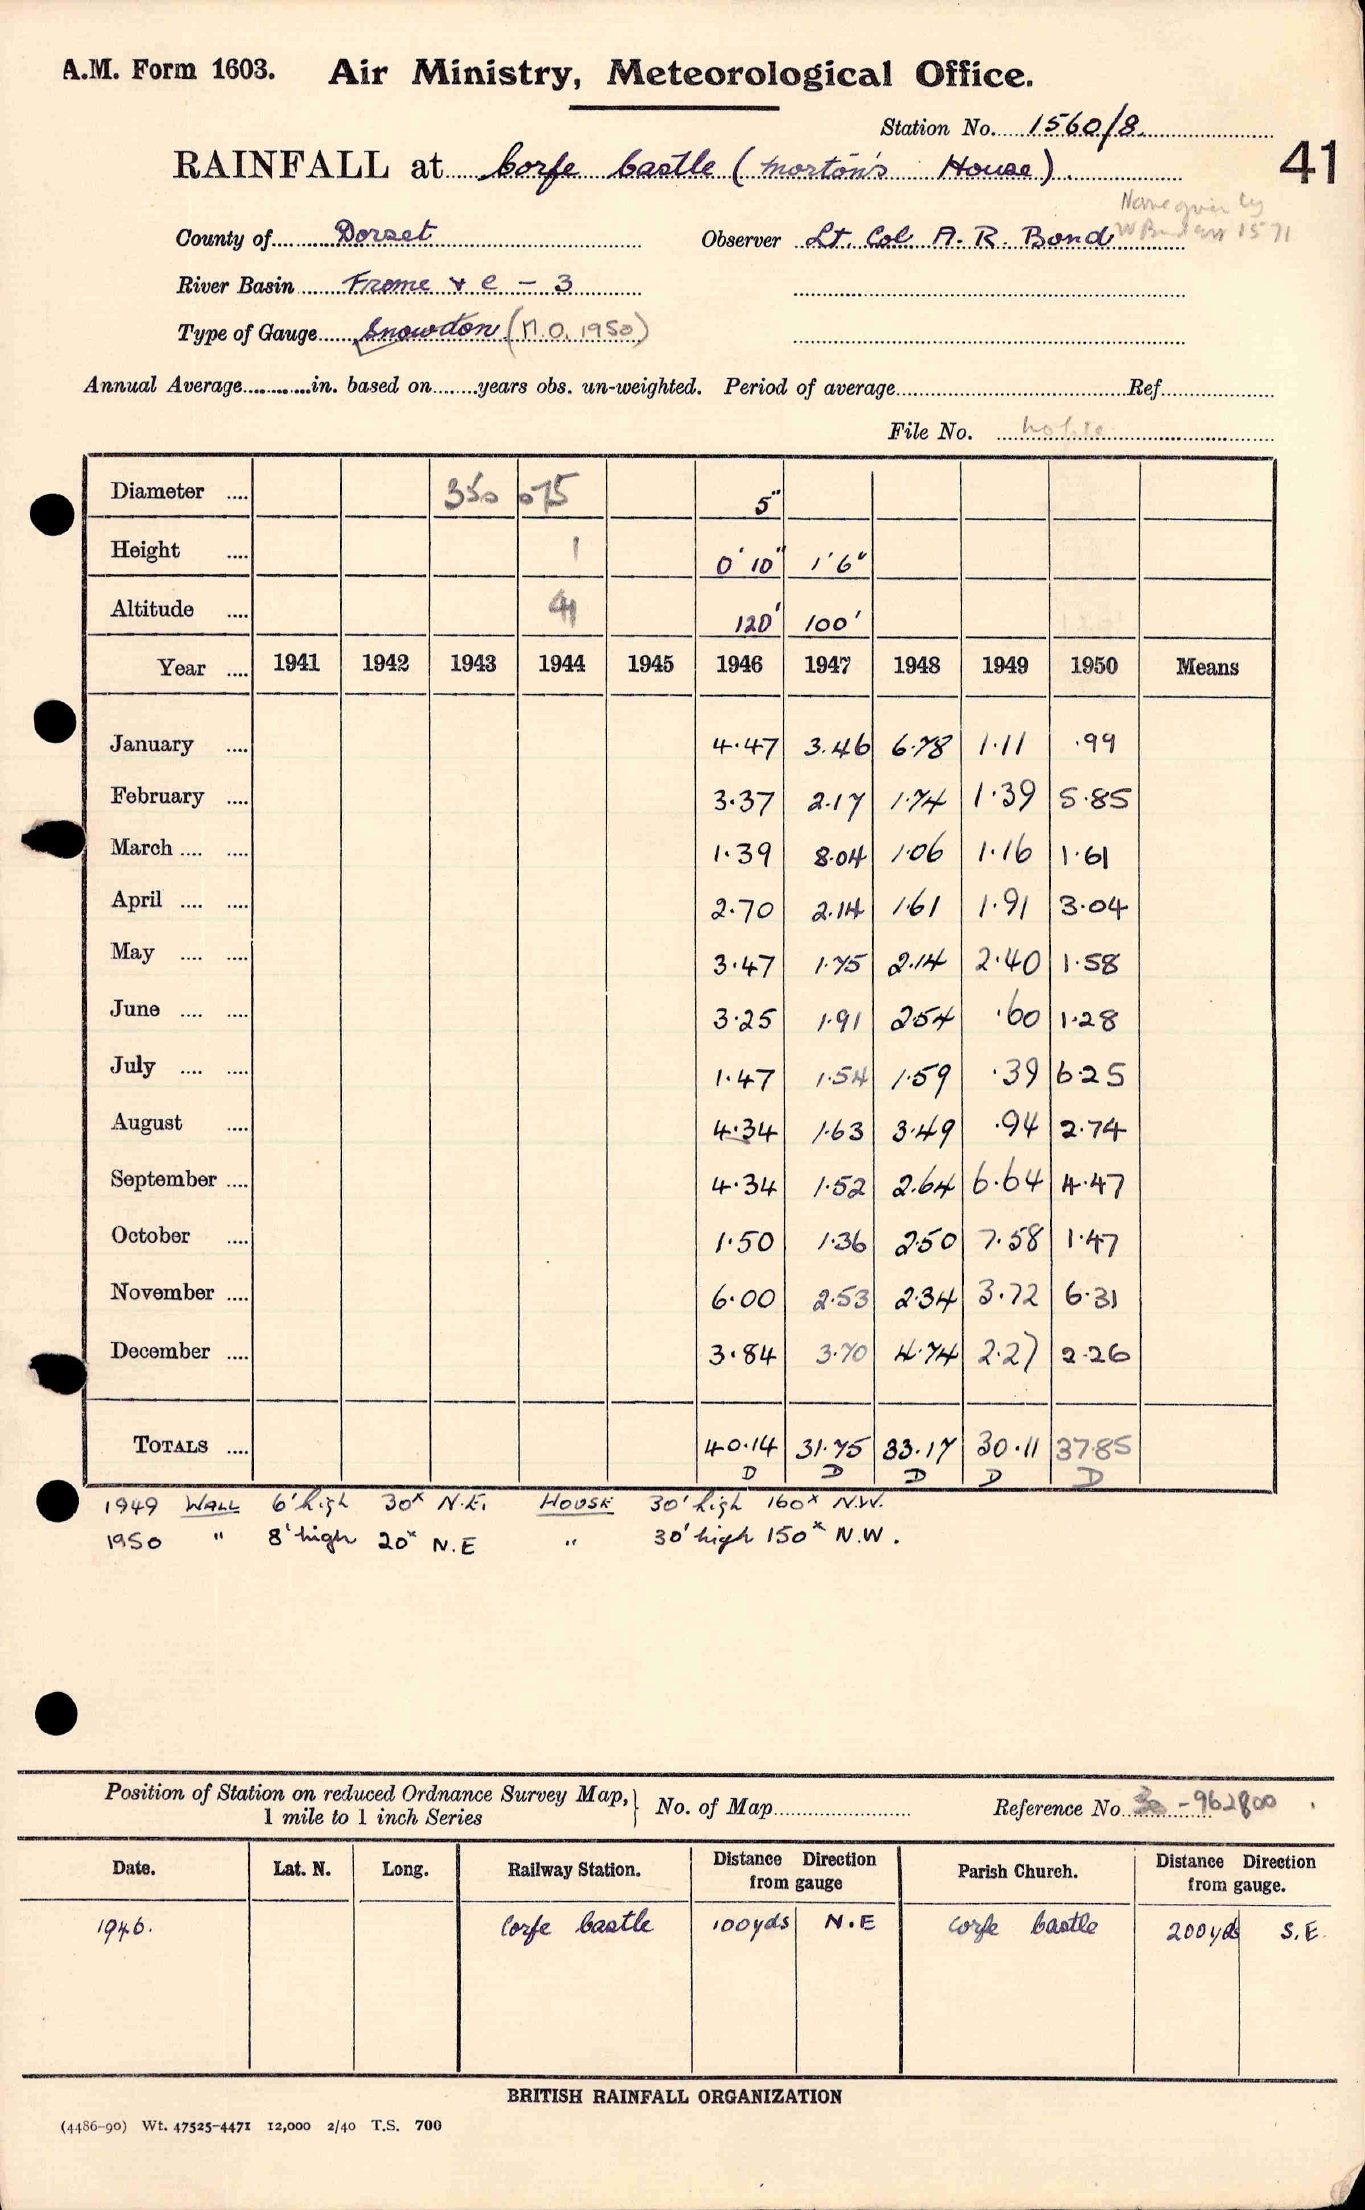 A.M. Form 1603. Air Ministry, Meteorological Office.
Station No. 1560/8
41
RAINFALL at Corfe Castle (Morton's House).
County of Dorset Observer Lt. Col. A. R. Bond
River Basin Frome & c - 3
Type of Gauge Snowdon (M.O. 1950)
Annual Average in. based on years obs. un-weighted. Period of average Ref.
File No.
Diameter .... 350 075 5"
Height .... 1 0' 10" 1' 6"
Altitude .... 120' 100'
Year .... 1941 1942 1943 1944 1945 1946 1947 1948 1949 1950 Means
January .... 4.47 3.46 6.78 1.11 .99
February .... 3.37 2.17 1.74 1.39 5.85
March .... .... 1.39 8.04 1.06 1.16 1.61
April .... .... 2.70 2.14 1.61 1.91 3.04
May .... .... 3.47 1.75 2.14 2.40 1.58
June .... .... 3.25 1.91 2.54 .60 1.28
July .... .... 1.47 1.54 1.59 .39 6.25
August .... 4.34 1.63 3.49 .94 2.74
September .... 4.34 1.52 2.64 6.64 4.47
October .... 1.50 1.36 2.50 7.58 1.47
November .... 6.00 2.53 2.34 3.72 6.31
December .... 3.84 3.70 4.74 2.27 2.26
TOTALS .... 40.14 31.75 33.17 30.11 37.85
D D D D D
1949 WALL 6' high 30x N.E. HOUSE 30' high 160x N.W.
1950 " 8' high 20x N.E " 30' high 150x N.W.
Position of Station on reduced Ordnance Survey Map, 1 mile to 1 inch Series No. of Map Reference No. 30 - 962800
Date. Lat. N. Long. Railway Station. Distance Direction from gauge Parish Church. Distance Direction from gauge.
1946. Corfe Castle 100yds N.E Corfe Castle 200yds S.E.
BRITISH RAINFALL ORGANIZATION
(4486-90) Wt. 47525-4471 12,000 2/40 T.S. 700